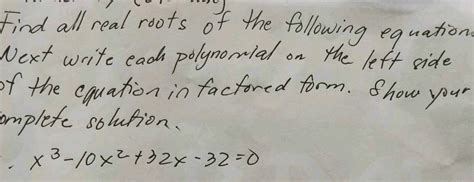 Find all real roots of the following equation
Next write each polynomial on the left side
of the equation in factored form. Show your
omplete solution.
. x³-10x²+32x-32=0